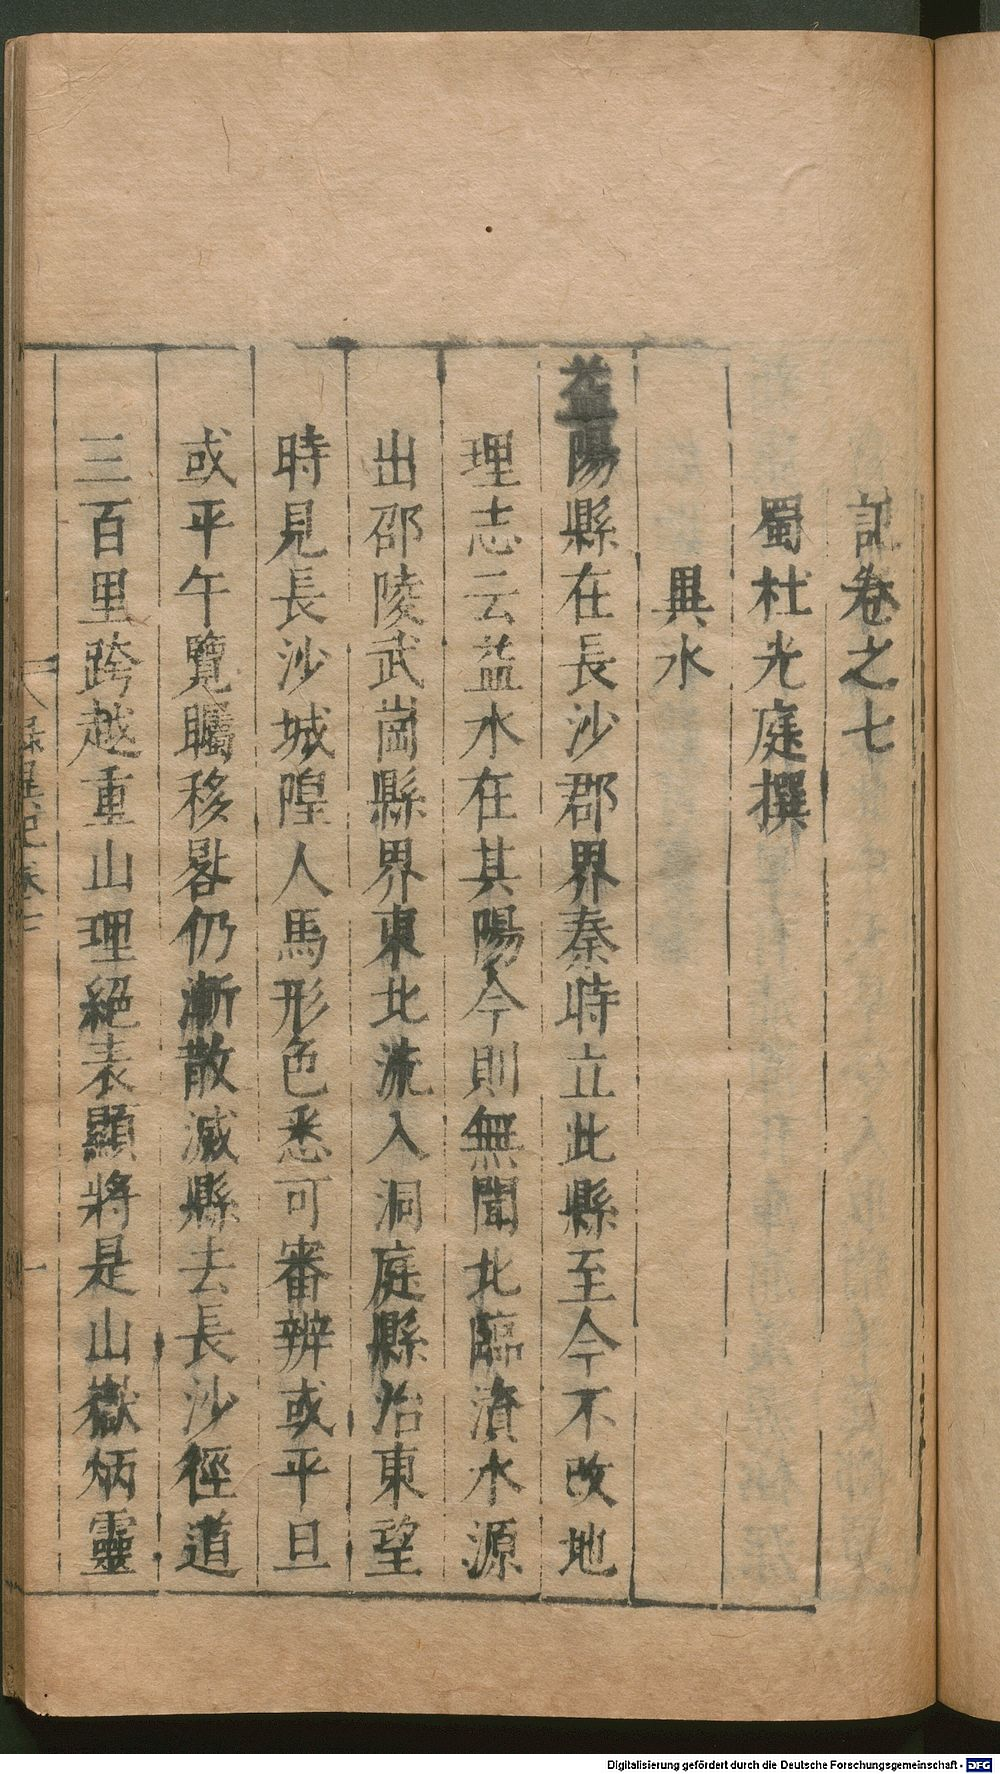 記卷之七
蜀杜光庭撰
異水
益陽縣在長沙郡界秦時立此縣至今不改地
理志云益水在其陽今則無聞北臨濱水源
出邵陵武崗縣界東北流入洞庭縣治東望
時見長沙城隍人馬形色悉可審辨或平旦
或平午覽矚移晷仍漸散滅縣去長沙徑道
三百里跨越重山理絕表顯將是山嶽炳靈
錄異記卷七
一
Digitalisierung gefördert durch die Deutsche Forschungsgemeinschaft - DFG